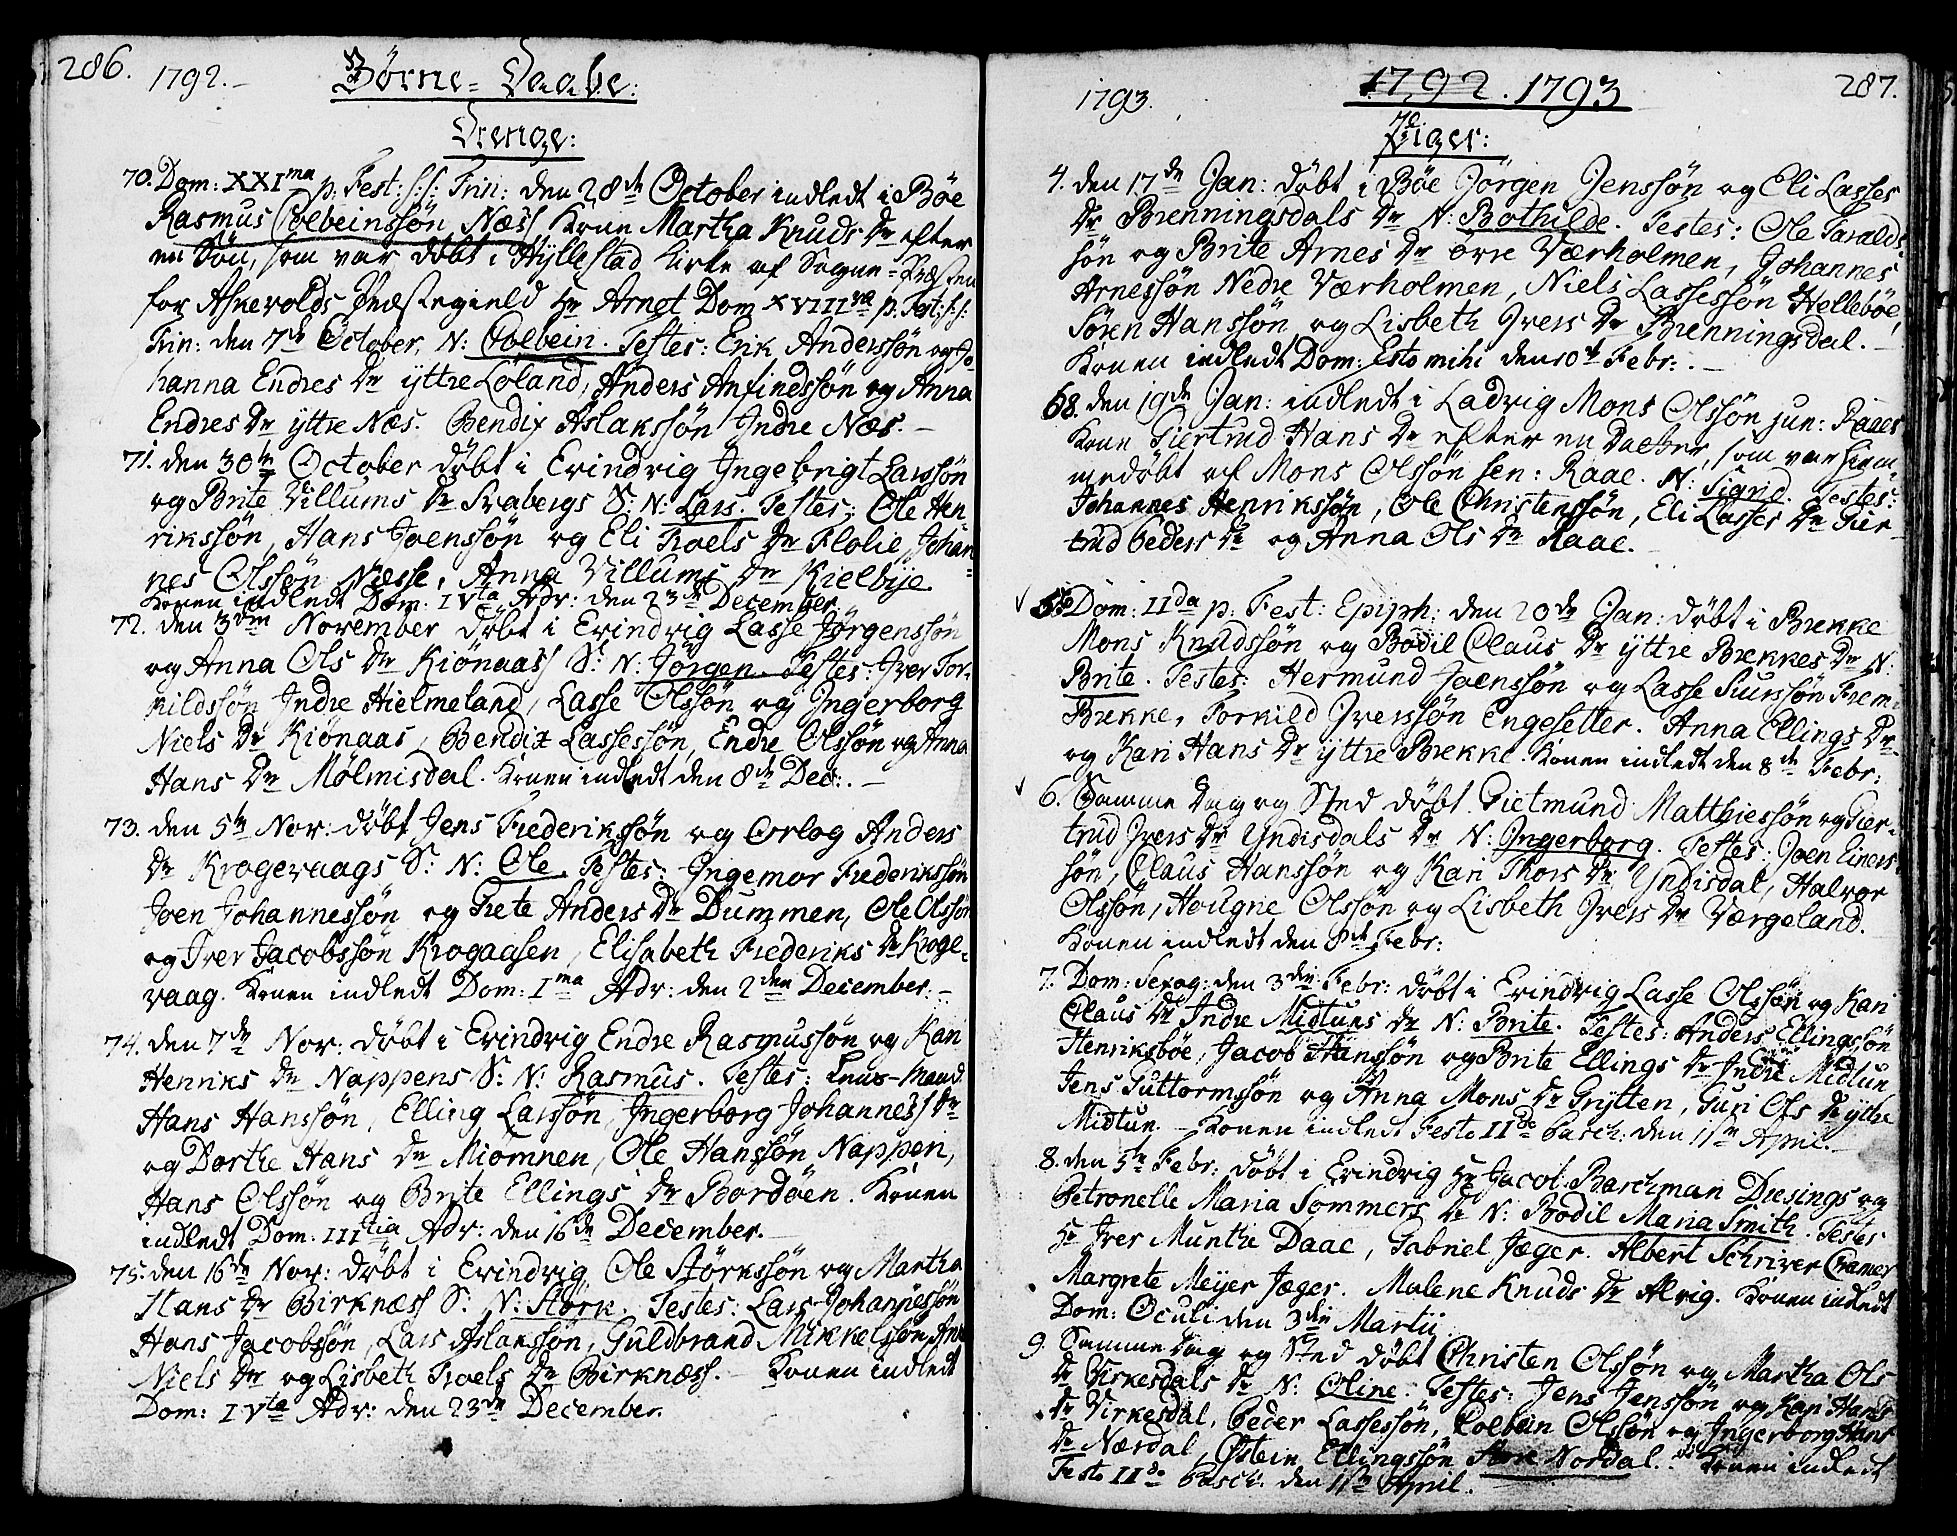 286.
1792.
Børne-Daabe:
Drenge:
70. Dom: XXIma p: Fest: s: s: Trin: den 28de October indledt i Bøe
Rasmus Colbeinssøn Næss Kone Martha Knuds Dr efter
en Søn, som var døbt i Hyllestad Kirke af Sogne-Præsten
for Askevolds Præstegield Hr Arnet Dom XVIIIva p. Fest: s: s:
Trin: den 7de October, N: Colbein. Testes: Erik Anderssøn og Jo-
hanna Endres Dr yttre Løland, Anders Anfindssøn og Anna
Endres Dr yttre Næs. Bendix Aslakssøn Indre Næs.
71. den 30te October døbt i Evindvig Ingebrigt Larssøn
og Brite Villums Dr Trabergs S: N: Lars. Testes: Ole Hen
rikssøn, Hans Joenssøn og Eli Troels Dr Flolie, Johan-
nes Olssøn Næsse, Anna Villums Dr Kielbye
Konen indledt Dom: IVta Adv: den 23de December
72. den 3die November døbt i Evindvig Lasse Jørgenssøn
og Anna Ols Dr Kiønaass S: N: Jørgen. Testes: Iver Tor-
kildssøn Indre Hielmeland, Lasse Olssøn og Ingerborg
Niels Dr Kiønaas, Bendix Lassessøn, Endre Olssøn og Anna
Hans Dr Mølmisdal. Konen indledt den 8de Dec:
73. den 5te Nov: døbt Jens Frederikssøn og Orlog Anders
Dr Kragevaags S: N: Ole. Testes: Ingemor Frederikssøn
Joen Johannessøn og Grete Anders Dr Dummen, Ole Olssøn
og Iver Jacobssøn Krogaasen, Elisabeth Frederiks Dr Kroge-
vaag. Konen indledt Dom: Ima Adv: den 2den December.
74. den 7de Nov: døbt i Evindvig Endre Rasmussøn og Kari
Henriks Dr Nappens S: N: Rasmus. Testes:
Hans Hanssøn, Elling Larssøn, Ingerborg Johannes Dr
og Dorthe Hans Dr Miømnen, Ole Hanssøn Nappen,
Hans Olssøn og Brite Ellings Dr Bordøen. Konen
indledt Dom: IIItia Adv: den 16de December.
75. den 16de Nov: døbt i Evindvig, Ole Størkssøn og Martha
Hans Dr Birknæss S: N: Størk. Testes: Lars Johannessøn
Hans Jacobssøn, Lars Aslanssøn, Guldbrand Mikkelssøn,
Niels Dr og Lisbeth Troels Dr Birknæss. Konen indledt
Dom: IVta Adv: den 23de December.
1793.
1792. 1793
287.
Piger:
4. den 17de Jan: døbt i Bøe Jørgen Jenssøn og Eli Lasses
Dr Brenningsdals Dr N: Bothilde. Testes: Ole Taralds
søn og Brite Arnes Dr øvre Værholmen, Johannes
Arnessøn Nedre Værholmen, Niels Lassessøn Hellebøe,
Søren Hanssøn og Lisbeth Ivers Dr Brenningsdal.
Konen indledt Dom: Esto mihi den 10de Febr:
den 19de Jan: indledt i Ladvig Mons Olssøn jun: Raaes
Kone Giertrud Hans Dr efter en Datter, som var hiem-
medøbt af Mons Olssøn sen: Raae. N: Sigrid. Testes:
Johannes Henrikssøn, Ole Christenssøn, Eli Lasses Dr Gier-
trud Peders Dr og Anna Ols Dr Raae.
Dom: IIda p: Fest: Epiph: den 20de Jan: døbt i Brekke
Mons Knudssøn og Bodil Claus Dr yttre Brekkes Dr N:
Brite. Testes: Hermund Joenssøn og Lasse Siurssøn Frem-
Brekke, Torkild Iverssøn Engesetter. Anna Ellings Dr
og Kari Hans Dr yttre Brekke. Konen indledt den 8de Febr:
6. Samme Dag og Sted døbt Gietmund Matthiessøn og Gier-
trud Ivers Dr Yndisdals Dr N: Ingerborg. Testes: Joen Einers
søn, Claus Hanssøn og Kari Thors Dr Yndisdal, Halvor
Olssøn, Hougne Olssøn og Lisbeth Ivers Dr Værgeland.
Konen indledt den 8de Febr:
7. Dom: Sexag: den 3die Febr: døbt i Evindvig Lasse Olssøn og Kari
Claus Dr Indre Midtuns Dr N: Brite. Testes: Anders Ellingssøn
Henriksbøe, Jacob Hanssøn og Brite Ellings Dr Indre Midtun
Jens Guttormssøn og Anna Mons Dr Grytten, Guri Ols Dr ythe
Midtun. Konen indledt Festo IIdo Pasch: den 11te April.
8. den 5te Febr: døbt i Evindvig Hr Jacob Barchman Dresings og
Petronelle Maria Sommers Dr N: Bodil Maria Smith. Testes
Hr Iver Munthe Daae, Gabriel Jæger. Albert Schriver Cramer
Margrete Meyer Jæger. Malene Knuds Dr Alvig. Konen indledt
Dom: Oculi den 3die Martii
9. Samme Dag og Sted døbt Christen Olssøn og Martha Ols
Dr Virkesdals Dr N: Oline. Testes: Jens Jenssøn og Kari Hans
Dr Virkesdal, Peder Lassessøn, Colbein Olssøn og Ingerborg Hans
Dr Nærdal, Østein Ellingssøn Nordal. Konen indledt
Festo IIdo Pasch: den 11te April.